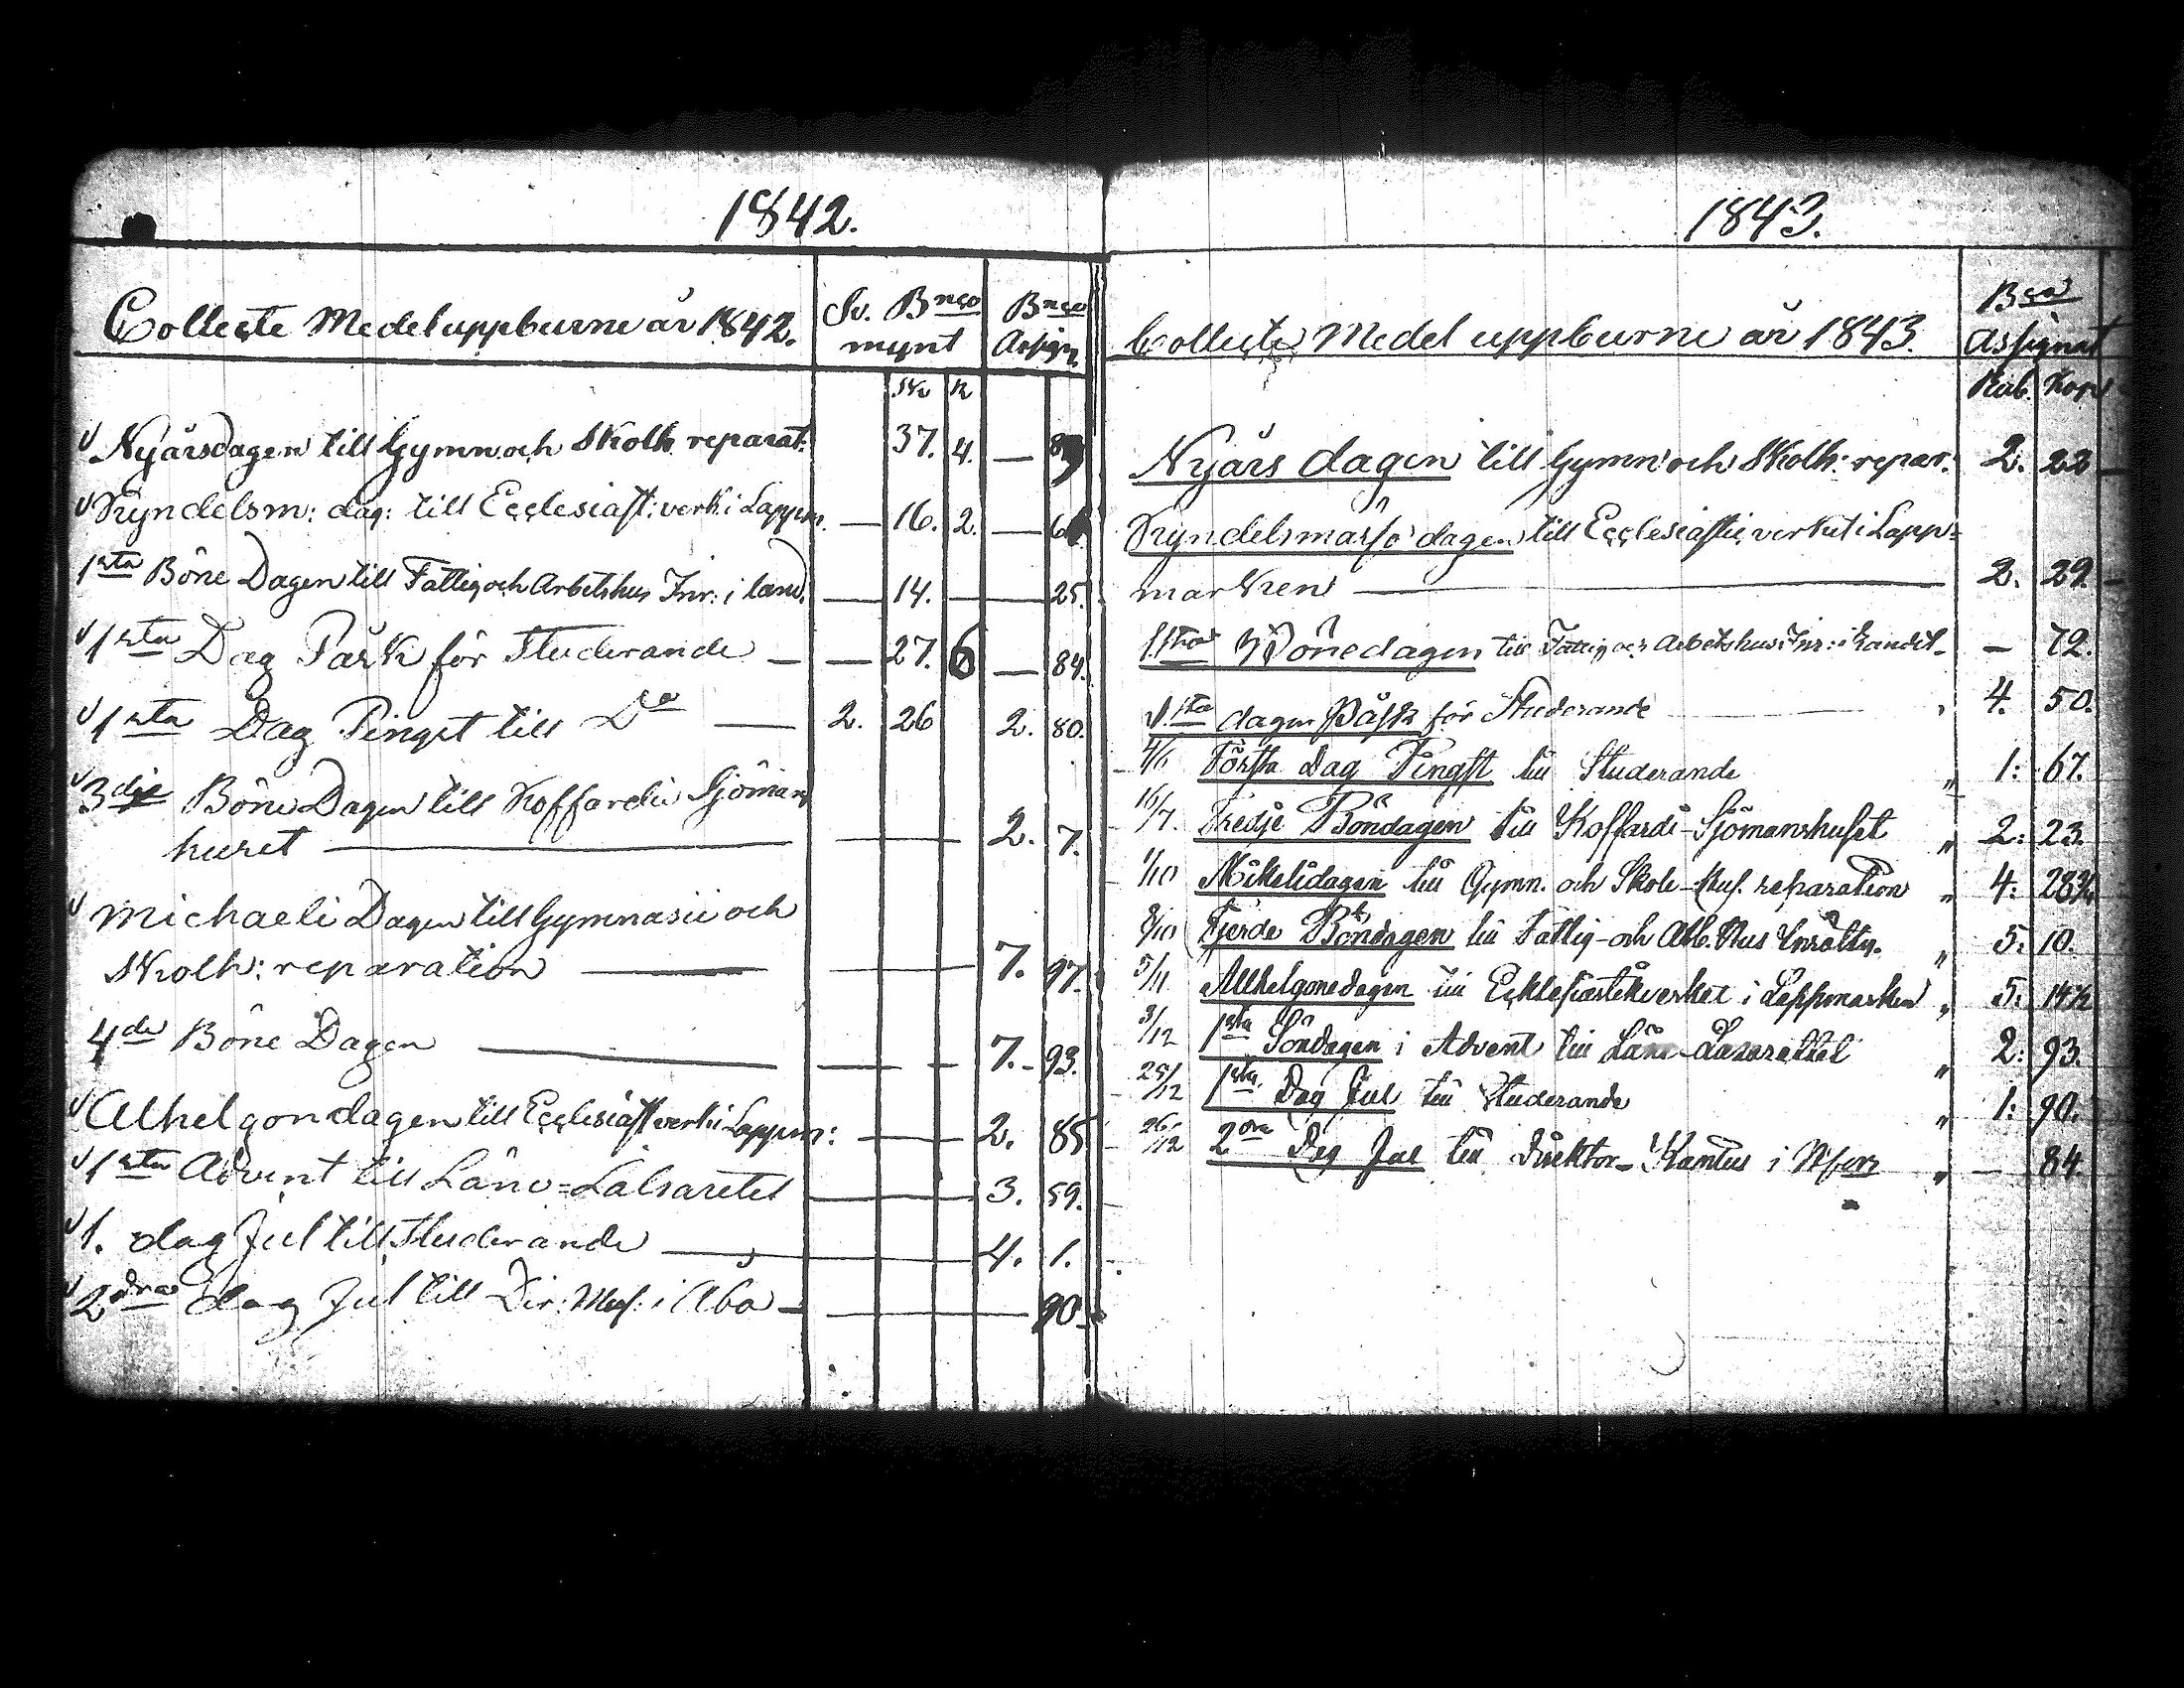 1842.
Collecte Medel uppburne år 1842. Sv. Bnco mynt Bnco Assign.
Sk k
Nyårsdagen till Gymn och Skolh. reparat: 37. 4. —
Kyndelsm: dag: till Ecclesiast: verk: i Lappm. — 16. 2. —
1sta Böne Dagen till Fattig och Arbetshus Inr: i land. — 14. — — 25.
1sta Dag Påsk för Studerande — — 27. 6 — 84.
1sta Dag Pingst till Do — 2. 26 2. 80.
3dje Böne Dagen till Koffardie Sjömans
huset — 2. 7.
Michaeli Dagen till Gymnasii och
Skolh: reparation — 7. 97.
4de Böne Dagen — 7. 93.
Alhelgondagen till Ecclesiast verk: i Lappm: — 2. 85
1sta Advent till Läns=Latsaretet — 3. 59.
1. dag Jul till Studerande — 4. 1.
2dra dag Jul till Dir: Mus: i Åbo — 90.
1843.
Collecte Medel uppburne år 1843. Bco Assignat
Rub. Kop
Nyårs dagen till Gymn och Skolh: repar. 2. 22
Kyndelsmässo dagen till Ecclesiastic verket i Lapp=
marken — 2. 29.
1sta Bönedagen till Fattig och Arbetshus Inr: i Landet — 72.
1sta dagen Påsk för Studerande 4. 50.
4/6 Första Dag Pingst till Studerande " 1: 67.
16/7. Tredje Böndagen till Koffardi-Sjömanshuset " 2: 23.
1/10 Mikelidagen till Gymn. och Skole-Hus. reparation " 4: 28¾
8/10 Fjerde Böndagen till Fattig- och Arb. Hus Inrättn. " 5: 10.
5/11 Allhelgonedagen till Ecklesiastikverket i Lappmarken " 5: 14½
3/12 1sta Söndagen i Advent till Läns-Lazarettet " 2: 93.
25/12 1sta Dag Jul till Studerande " 1: 90.
26/12 2dra Dag Jul till Direktor Kantus i " — 84